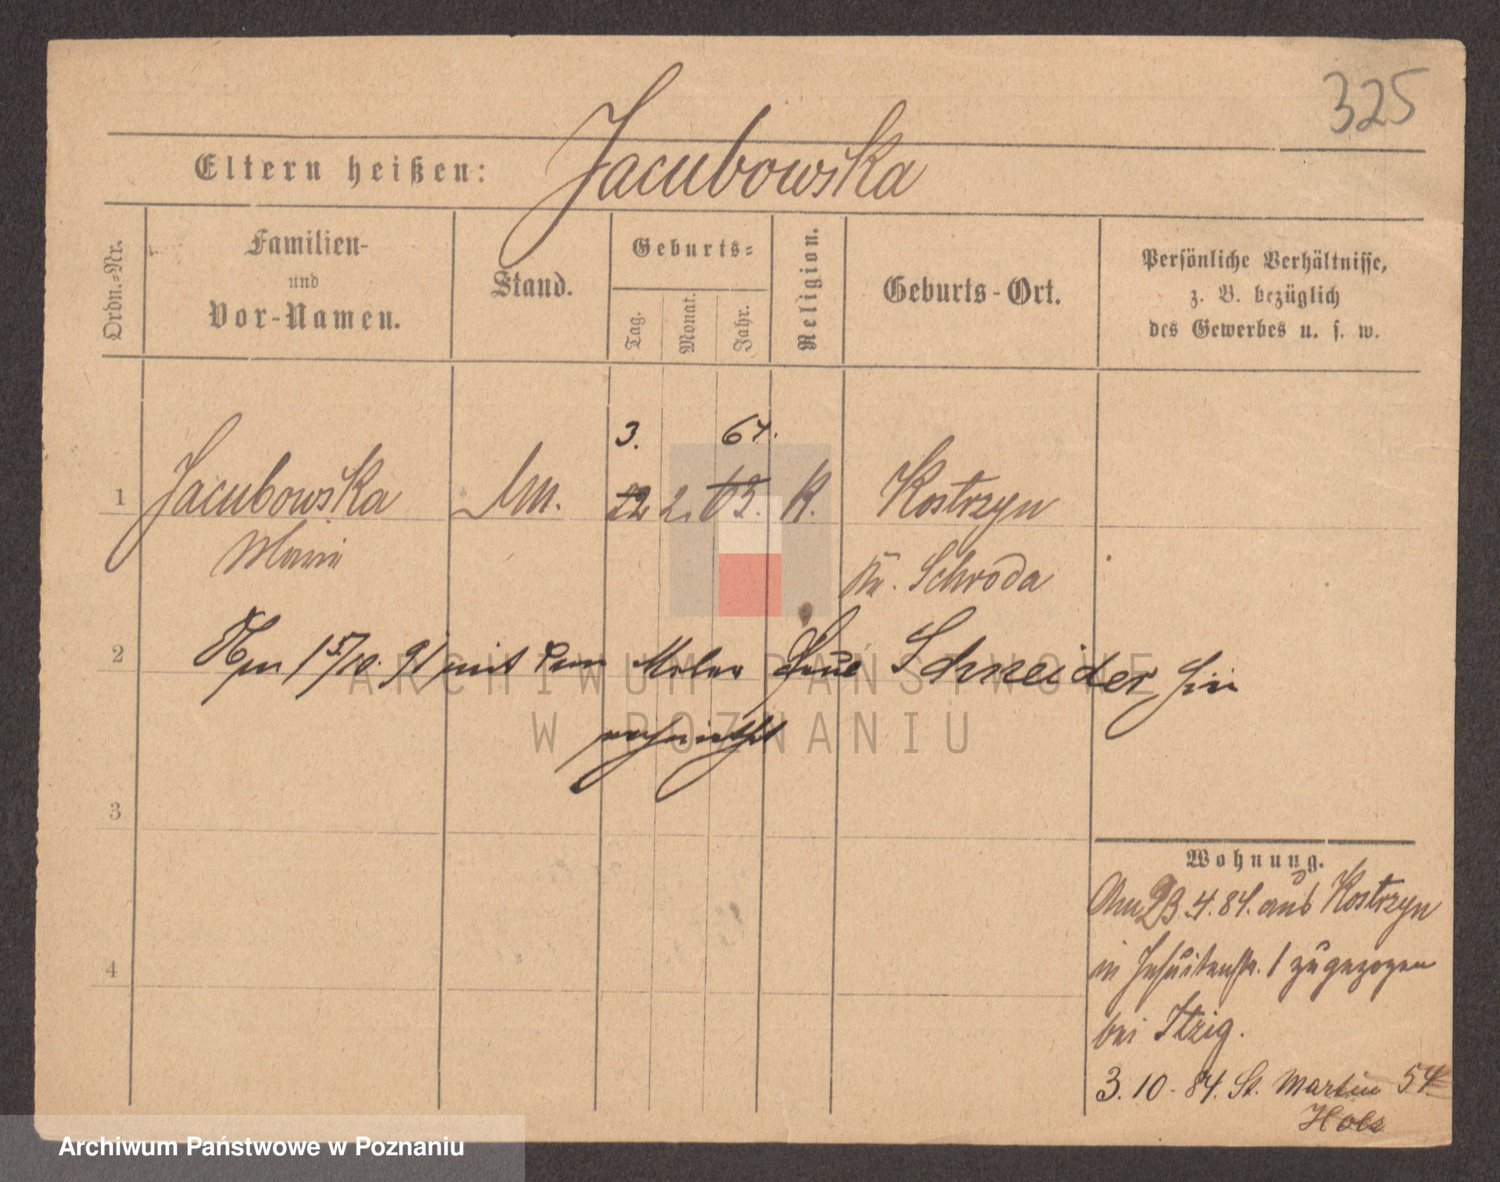 325
Eltern heißen: Jacubowska
Ordn.-Nr.
Familien-
und
Vor-Namen.
Stand.
Geburts-
Tag.
Monat.
Jahr.
Religion.
Geburts-Ort.
Persönliche Verhältnisse,
z. B. bezüglich
des Gewerbes u. s. w.
3. 64.
1 Jacubowska 22 2. 63. K. Kostrzyn
Marie Kr. Schroda
2 Am 15/10. 91 mit dem Maler Schneider hier
ARCHIWUM PAŃSTWOWE
W POZNANIU
3
Wohnung.
Am 23.4.84. aus Kostrzyn
4 in Jesuitenstr. 1 zugezogen
bei Itzig.
3. 10. 84. St. Martin 54
Archiwum Państwowe w Poznaniu